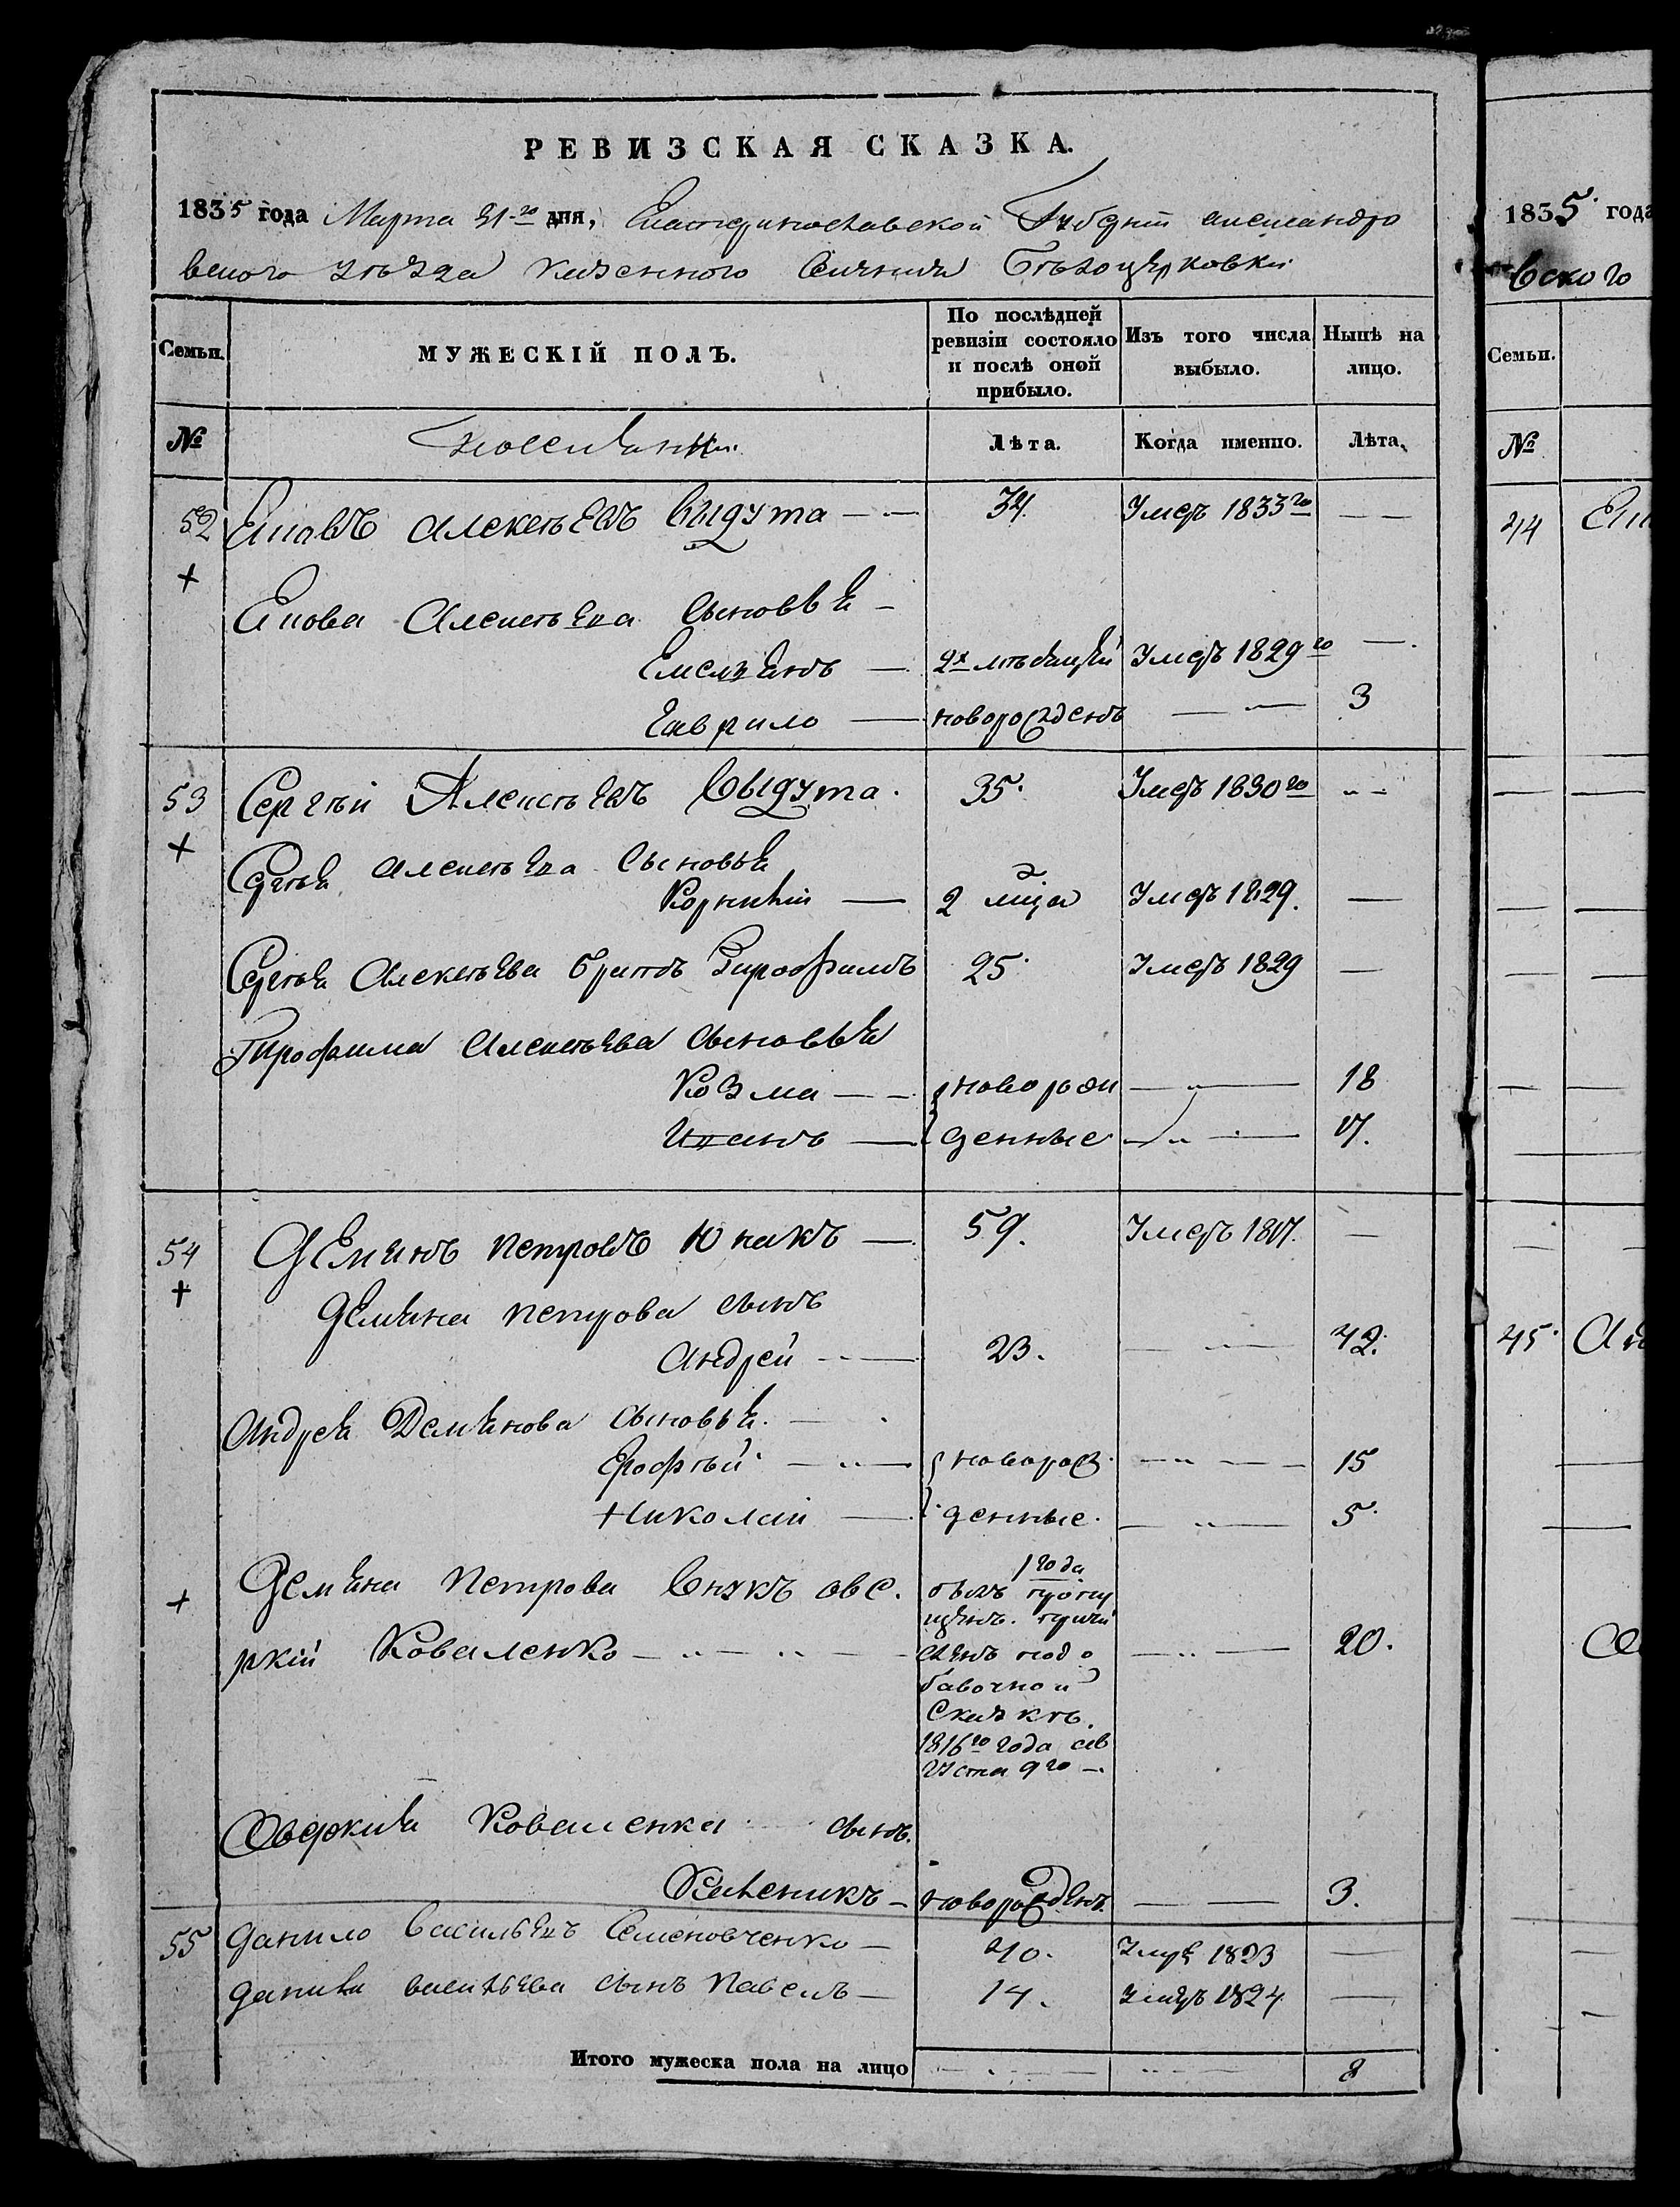 РЕВИЗСКАЯ СКАЗКА.
1835 года Марта 31го дня, Екатеринославской Губерніи александро
вского уѣзда казенного Селенія Бѣлоцерковки
Семьи.
МУЖЕСКІЙ ПОЛЪ.
По послѣдней ревизіи состояло и послѣ оной прибыло.
Изъ того числа выбыло.
Нынѣ на лицо.
№
поселяне
Лѣта.
Когда именно.
Лѣта.
52 Яковъ Алексѣевъ Выдута 34 Умеръ 1833го
Якова Алексѣева Сыновья
Емельянъ 2х мѣсяцей Умеръ 1829го
Гаврило новорожденъ 3
53 Сергѣй Алексѣевъ Выдута 35 Умеръ 1830го
Сергѣя Алексѣева Сыновья
Корнѣй 2 мѣца Умеръ 1829.
Сергѣя Алексѣева братъ Трофимъ 25 Умеръ 1829
Трофима Алексѣева Сыновья
Козма новорож 18
Иванъ денные 17.
54 Демянъ Петровъ Юнакъ 59. Умеръ 1817.
Демяна Петрова сынъ
Андрей 23. 42.
Андрея Демянова Сыновья.
Ерофѣй новорож. 15
Николай денные. 5.
Демяна Петрова Внукъ аве.
ркій Коваленко 20.
1 года
былъ пропу
щенъ. причи
сленъ по до
бавочной
Сказкѣ.
1816го года ав
густа 9го
Оверкия Коваленка сынъ.
новорожденъ. 3.
55 Данило Васильевъ Семеновченко 40. Умре 1823
Данила Васильева Сынъ Павелъ 14. Умеръ 1824
Итого мужеска пола на лицо 8
1835 года
вского
Семьи.
№
44
45.